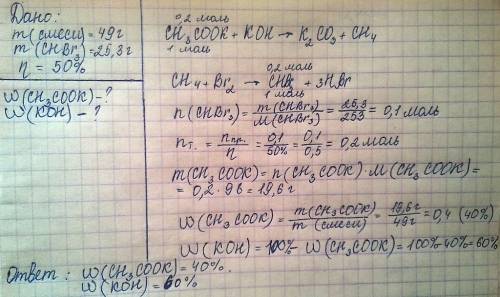 Дано:
m(смеси)=49г
m(CHBr3)=25,3г
η = 50%
ω(CH3COOK)-?
ω(KOH) - ?
0,2 моль
CH3COOK + KOH → K2CO3 + CH4
1 моль
0,2 моль
CH4 + Br2 → CHBr3 + 3HBr
1 моль
n(CHBr3) = m(CHBr3)/M(CHBr3) = 25,3/253 = 0,1 моль
nт. = nпр./η = 0,1/50% = 0,1/0,5 = 0,2 моль
m(CH3COOK) = n(CH3COOK)·M(CH3COOK) =
= 0,2 · 98 = 19,6 г
ω(CH3COOK) = m(CH3COOK)/m(смеси) = 19,6г/49г = 0,4 (40%)
ω(KOH) = 100% - ω(CH3COOK) = 100% - 40% = 60%
Ответ: ω(CH3COOK) = 40%.
ω(KOH) = 60%